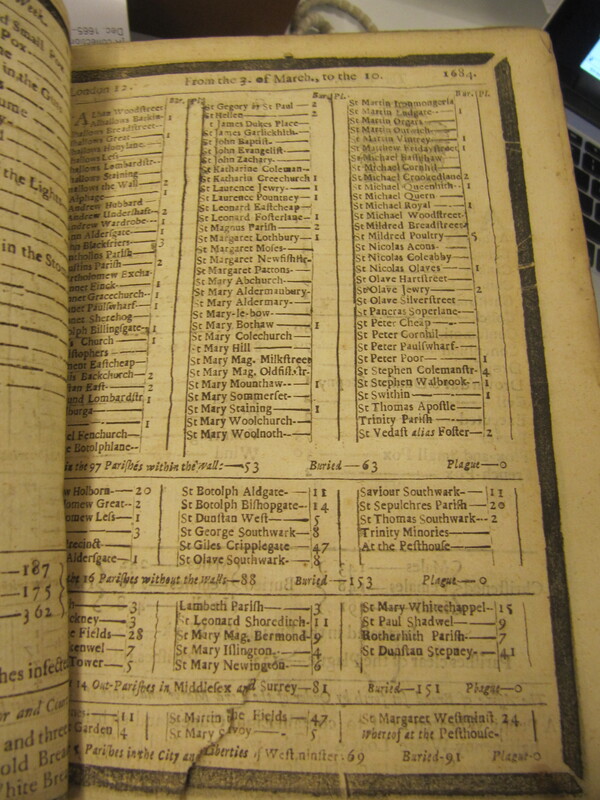 London 12. From the 3. of March., to the 10. 1684.
Bur. Pl.
Bur. Pl.
Alban Woodstreet
Alhallows Barkin
hallows Breadstreet
hallows Great 1
hallows Honylane
hallows Less
hallows Lombardstr-
hallows Staining
hallows the Wall 2
Alphage 1
Andrew Hubbard
Andrew Undershaft-- 2
Andrew Wardrobe 1
Ann Aldersgate 1
Ann Blackfriers 3
tholins Parish
ustins Parish 2
artholomew Excha-
ennet Finck 1
nnet Gracechurch-- 1
nnet Paulswharf- 1
nnet Sherehog
olph Billingsgate 1
Church 1
stophers
ment Eastcheap
is Backchurch-- 2
tan East-- 2
und Lombardstr 1
burga
1
el Fenchurch
e Botolphlane--
St Gegory by St Paul-- 2
St Hellen 2
St James Dukes Place
St James Garlickhith-
St John Baptist-
St John Evangelist-
St John Zachary-
St Katharine Coleman-
St Katharin Creechurch 1
St Laurence Jewry- 1
St Laurence Pountney-- 1
St Leonard Eastcheap
St Leonard Fosterlane- 1
St Magnus Parish-- 2
St Margaret Lothbury- 1
St Margaret Moses--
St Margaret Newfishstr-
St Margaret Pattons-
St Mary Abchurch--
St Mary Aldermanbury-
St Mary Aldermary-
St Mary-le-bow
St Mary Bothaw 1
St Mary Colechurch-
St Mary Hill
St Mary Mag. Milkstreet
St Mary Mag, Oldfishstr-
St Mary Mounthaw-- 1
St Mary Sommerset-
St Mary Staining 1
St Mary Woolchurch-
St Mary Woolnoth--
St Martin Ironmongerla
St Martin Ludgate- 1
St Martin Orgars
St Martin Outwich
St Martin Vintrey- 1
St Matthew Fridaystreet 1
St Michael Bassishaw
St Michael Cornhil
St Michael Crookedlane 2
St Michael Queenhith- 1
St Michael Quern
St Michael Royal 1
St Michael Woodstreet
St Mildred Breadstreet
St Mildred Poultry 5
St Nicolas Acons-
St Nicolas Coleabby
St Nicolas Olaves 1
St Olave Hartstreet
St Olave Jewry 2
St Olave Silverstreet
St Pancras Soperlane-
St Peter Cheap
St Peter Cornhil
St Peter Paulswharf-
St Peter Poor 1
St Stephen Colemanstr- 4
St Stephen Walbrook- 1
St Swithin 1
St Thomas Apostle
Trinity Parish
St Vedast alias Foster-- 2
in the 97 Parishes within the walls—53 Buried—63 Plague—0
w Holborn—20
omew Great-- 2
omew Less 1
3
recinct
Aldersgate 1
St Botolph Aldgate- 11
St Botolph Bishopgate- 14
St Dunstan West 5
St George Southwark- 8
St Giles Cripplegate 47
St Olave Southwark- 8
Saviour Southwark- 11
St Sepulchres Parish- 20
St Thomas Southwark-- 2
Trinity Minories
At the Pesthouse
the 16 Parishes without the Walls—88 Buried—153 Plague—0
h 3
ckney 3
e Fields-- 28
kenwel 7
Tower 5
Lambeth Parish 3
St Leonard Shoreditch- 11
St Mary Mag, Bermond- 9
St Mary Islington 4
St Mary Newington 6
St Mary Whitechappel- 15
St Paul Shadwel 9
Rotherhith Parish 7
St Dunstan Stepney 41
14 Out-Parishes in Middlesex and Surrey—81 Buried—151 Plague—0
11
Garden 4
St Martin the Fields 47
St Mary Savoy 5
St Margaret Westminst. 24
whereof at the Pesthouse-
5 Parishes in the City and Liberties of Westminster-69 Buried-91 Plague-0
—187
—175
—362
in the Sto
the Lights